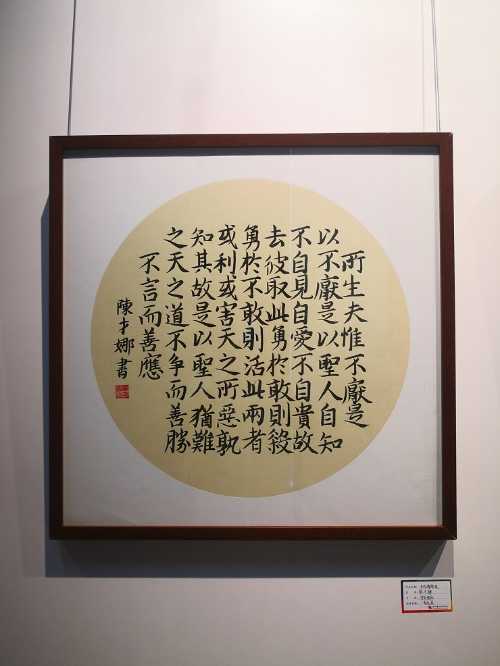 所生夫惟不厭是
以不厭是以聖人自知
不自見自愛不自貴故
去彼取此勇於敢則殺
勇於不敢則活此兩者
或利或害天之所惡孰
知其故是以聖人猶難
之天之道不争而善勝
不言而善應
陳才娜書